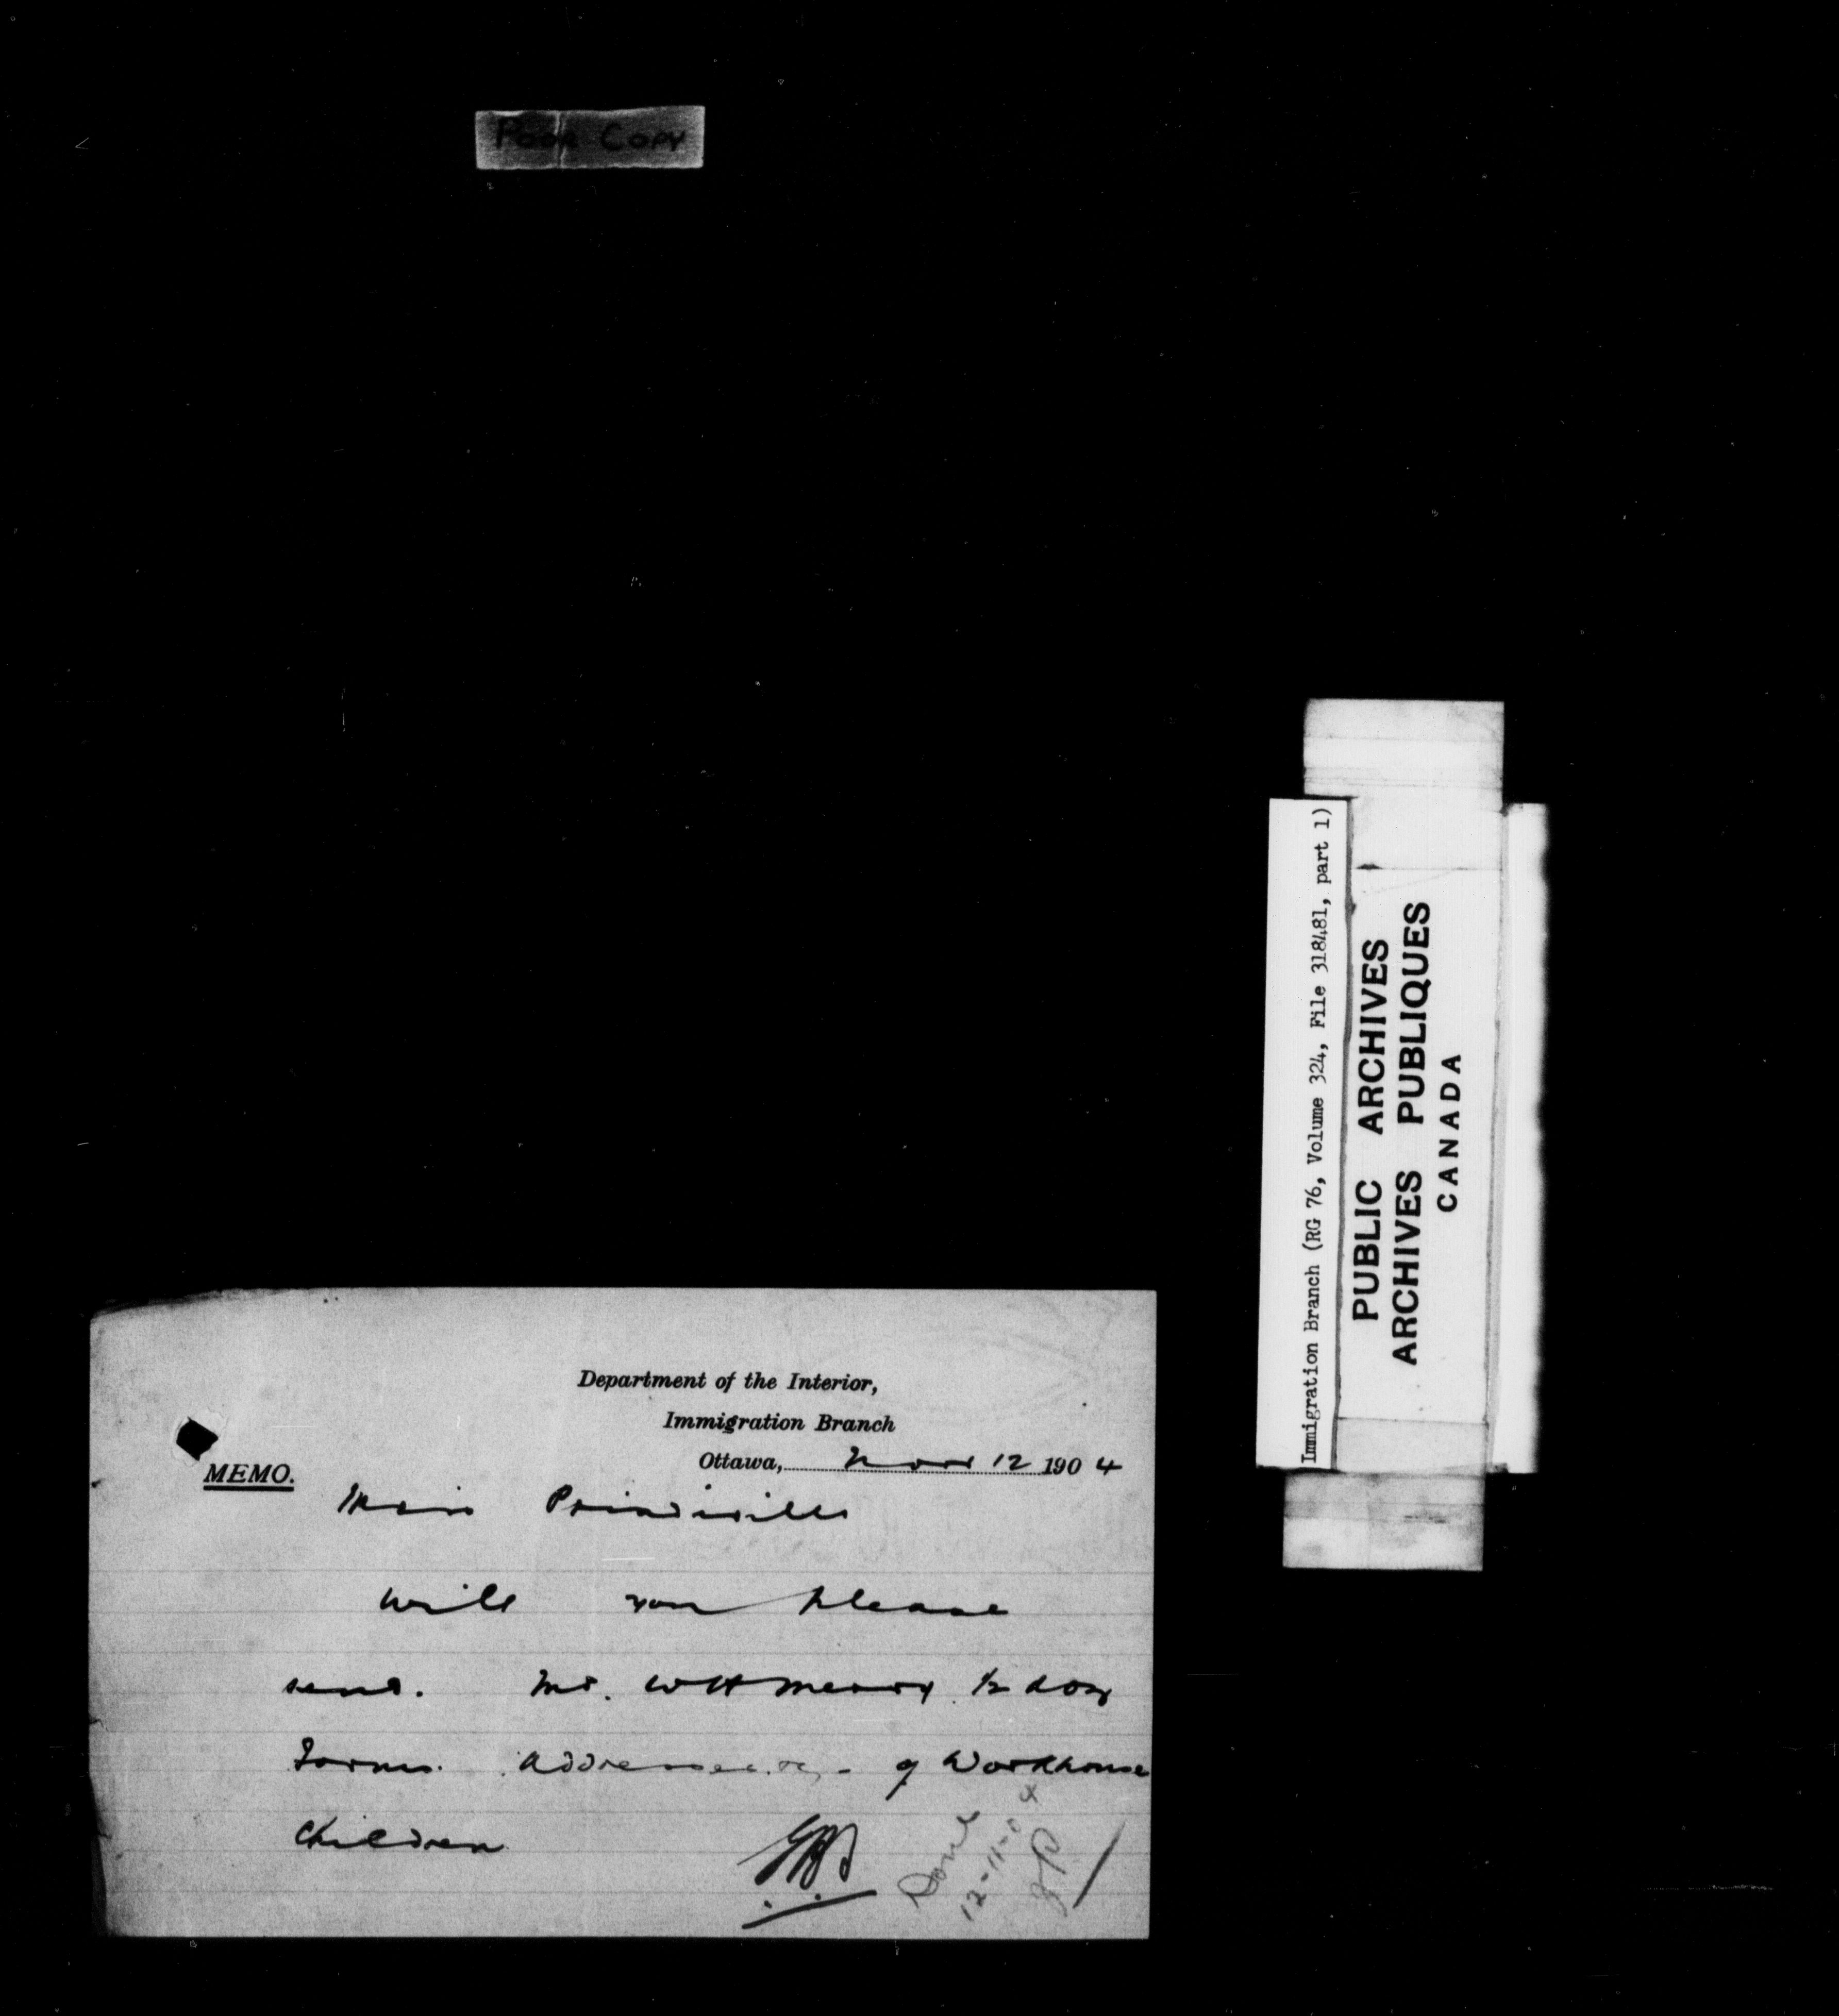 Poor Copy
Immigration Branch (RG 76, Volume 324, File 318481, part 1)
PUBLIC ARCHIVES
ARCHIVES PUBLIQUES
CANADA
Department of the Interior,
Immigration Branch
Ottawa, Nov 12 1904
MEMO.
Miss
will you please
send. Mr. W H Merry. 1/2 doz
Forms. of Workhouse
children
Done
12-11-04